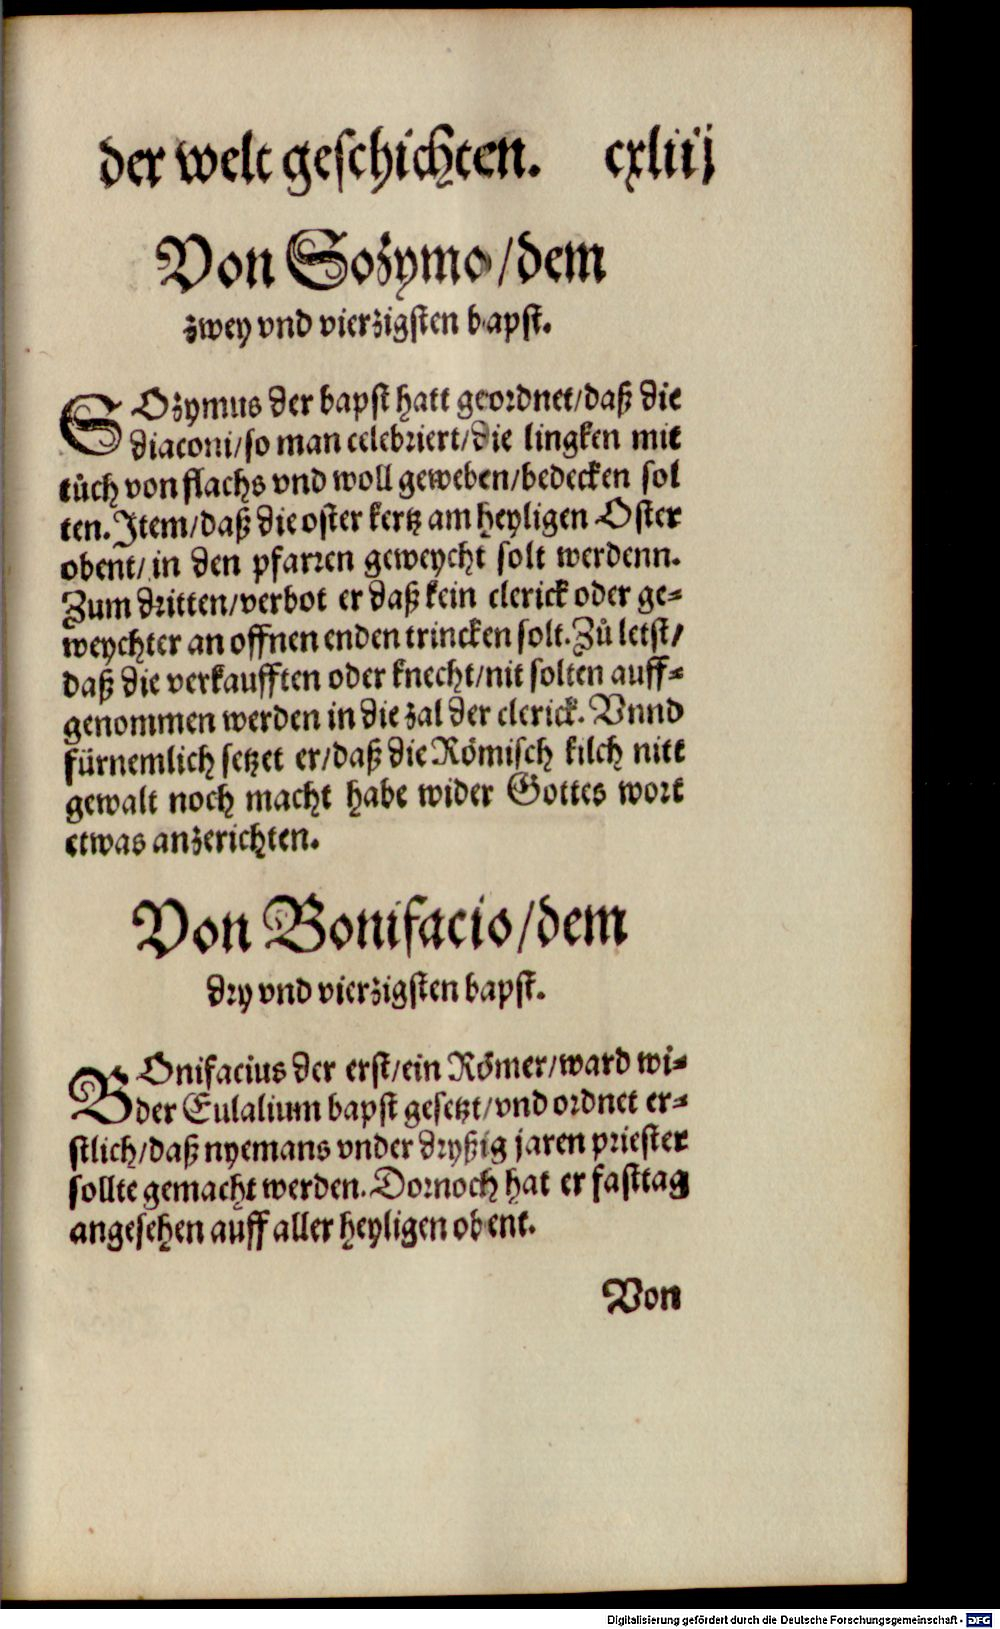 der welt geschichten. cxliij
Von Sozymo/dem
zwey vnd vierzigsten bapst.
SOzymus der bapst hatt geordnet/daß die
diaconi/so man celebriert/die lingken mit
tůch von flachs vnd woll geweben/bedecken sol
ten. Item/daß die oster kertz am heyligen Oster
obent/in den pfarren geweycht solt werdenn.
Zum dritten/verbot er daß kein clerick oder ge-
weychter an offnen enden trincken solt. Zů letst/
daß die verkaufften oder knecht/nit solten auff-
genommen werden in die zal der clerick. Vnnd
fürnemlich setzet er/daß die Römisch kilch nitt
gewalt noch macht habe wider Gottes wort
etwas anzerichten.
Von Bonifacio/dem
dry vnd vierzigsten bapst.
BOnifacius der erst/ein Römer/ward wi-
der Eulalium bapst gesetzt/vnd ordnet er-
stlich/daß nyemans vnder dryßig jaren priester
sollte gemacht werden. Dornoch hat er fasttag
angesehen auff aller heyligen obent.
Von
Digitalisierung gefördert durch die Deutsche Forschungsgemeinschaft - DFG